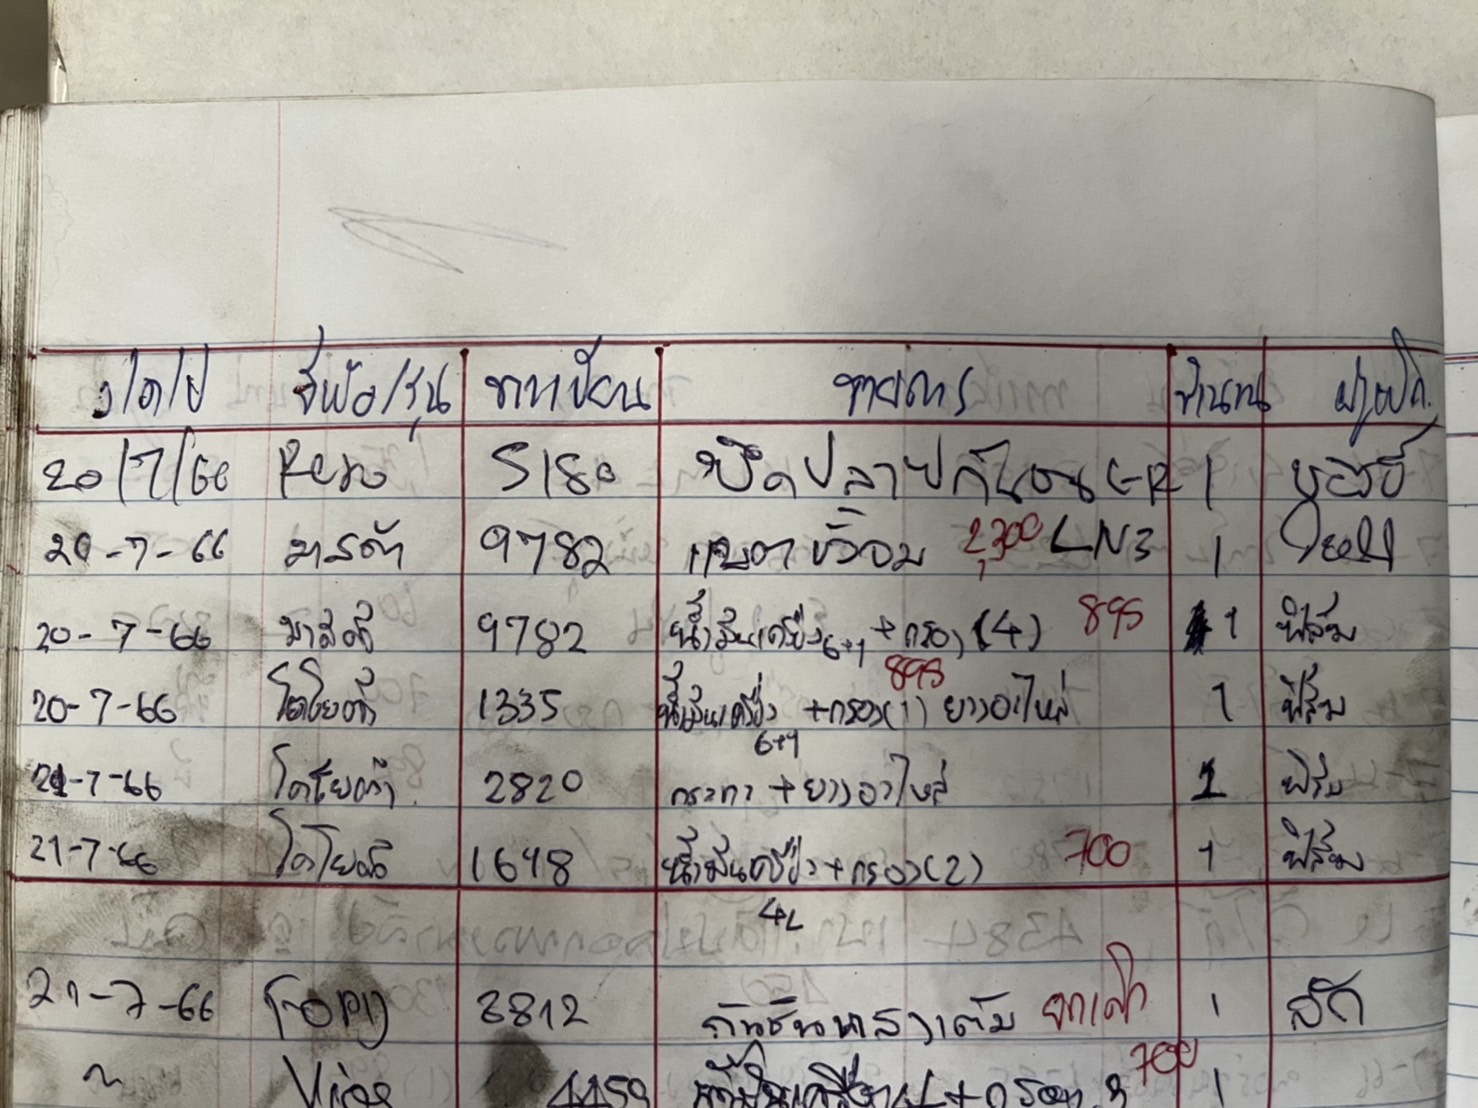 ว/ด/ป ยี่ห้อ/รุ่น ทะเบียน รายการ จำนวน ผู้เบิก
20/7/66 Revo 5180 ปลายกันชน 1
20-7-66 มาสด้า 9782 แบตขั้วจม 2,300 LN3 1
20-7-66 มาสด้า 9782 น้ำมันเครื่อง 6+1 +กรอง (4) 895 1 ฟิล์ม
895
20-7-66 โตโยต้า 1335 น้ำมันเครื่อง +กรอง(1) ยางอะไหล่ 1 ฟิล์ม
6+1
21-7-66 โตโยต้า 2820 + ยางอะไหล่ 1 ฟิล์ม
21-7-66 โตโยต้า 1648 น้ำมันเครื่อง+กรอง(2) 700 1 ฟิล์ม
4L
21-7-66 FORD 3812 กันชนหลังเดิม 1
700
~ Vios 4459 น้ำมันเครื่อง 4L+กรอง 1